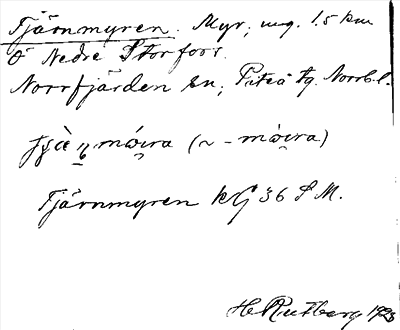 Tjärnmyren. Myr, ung. 1.5 km
Ö Nedre Storfors.
Norrfjärden sn, Piteå tg. Norrb. l.
(~ -
Tjärnmyren kG 36 S M.
H Rutberg 1923